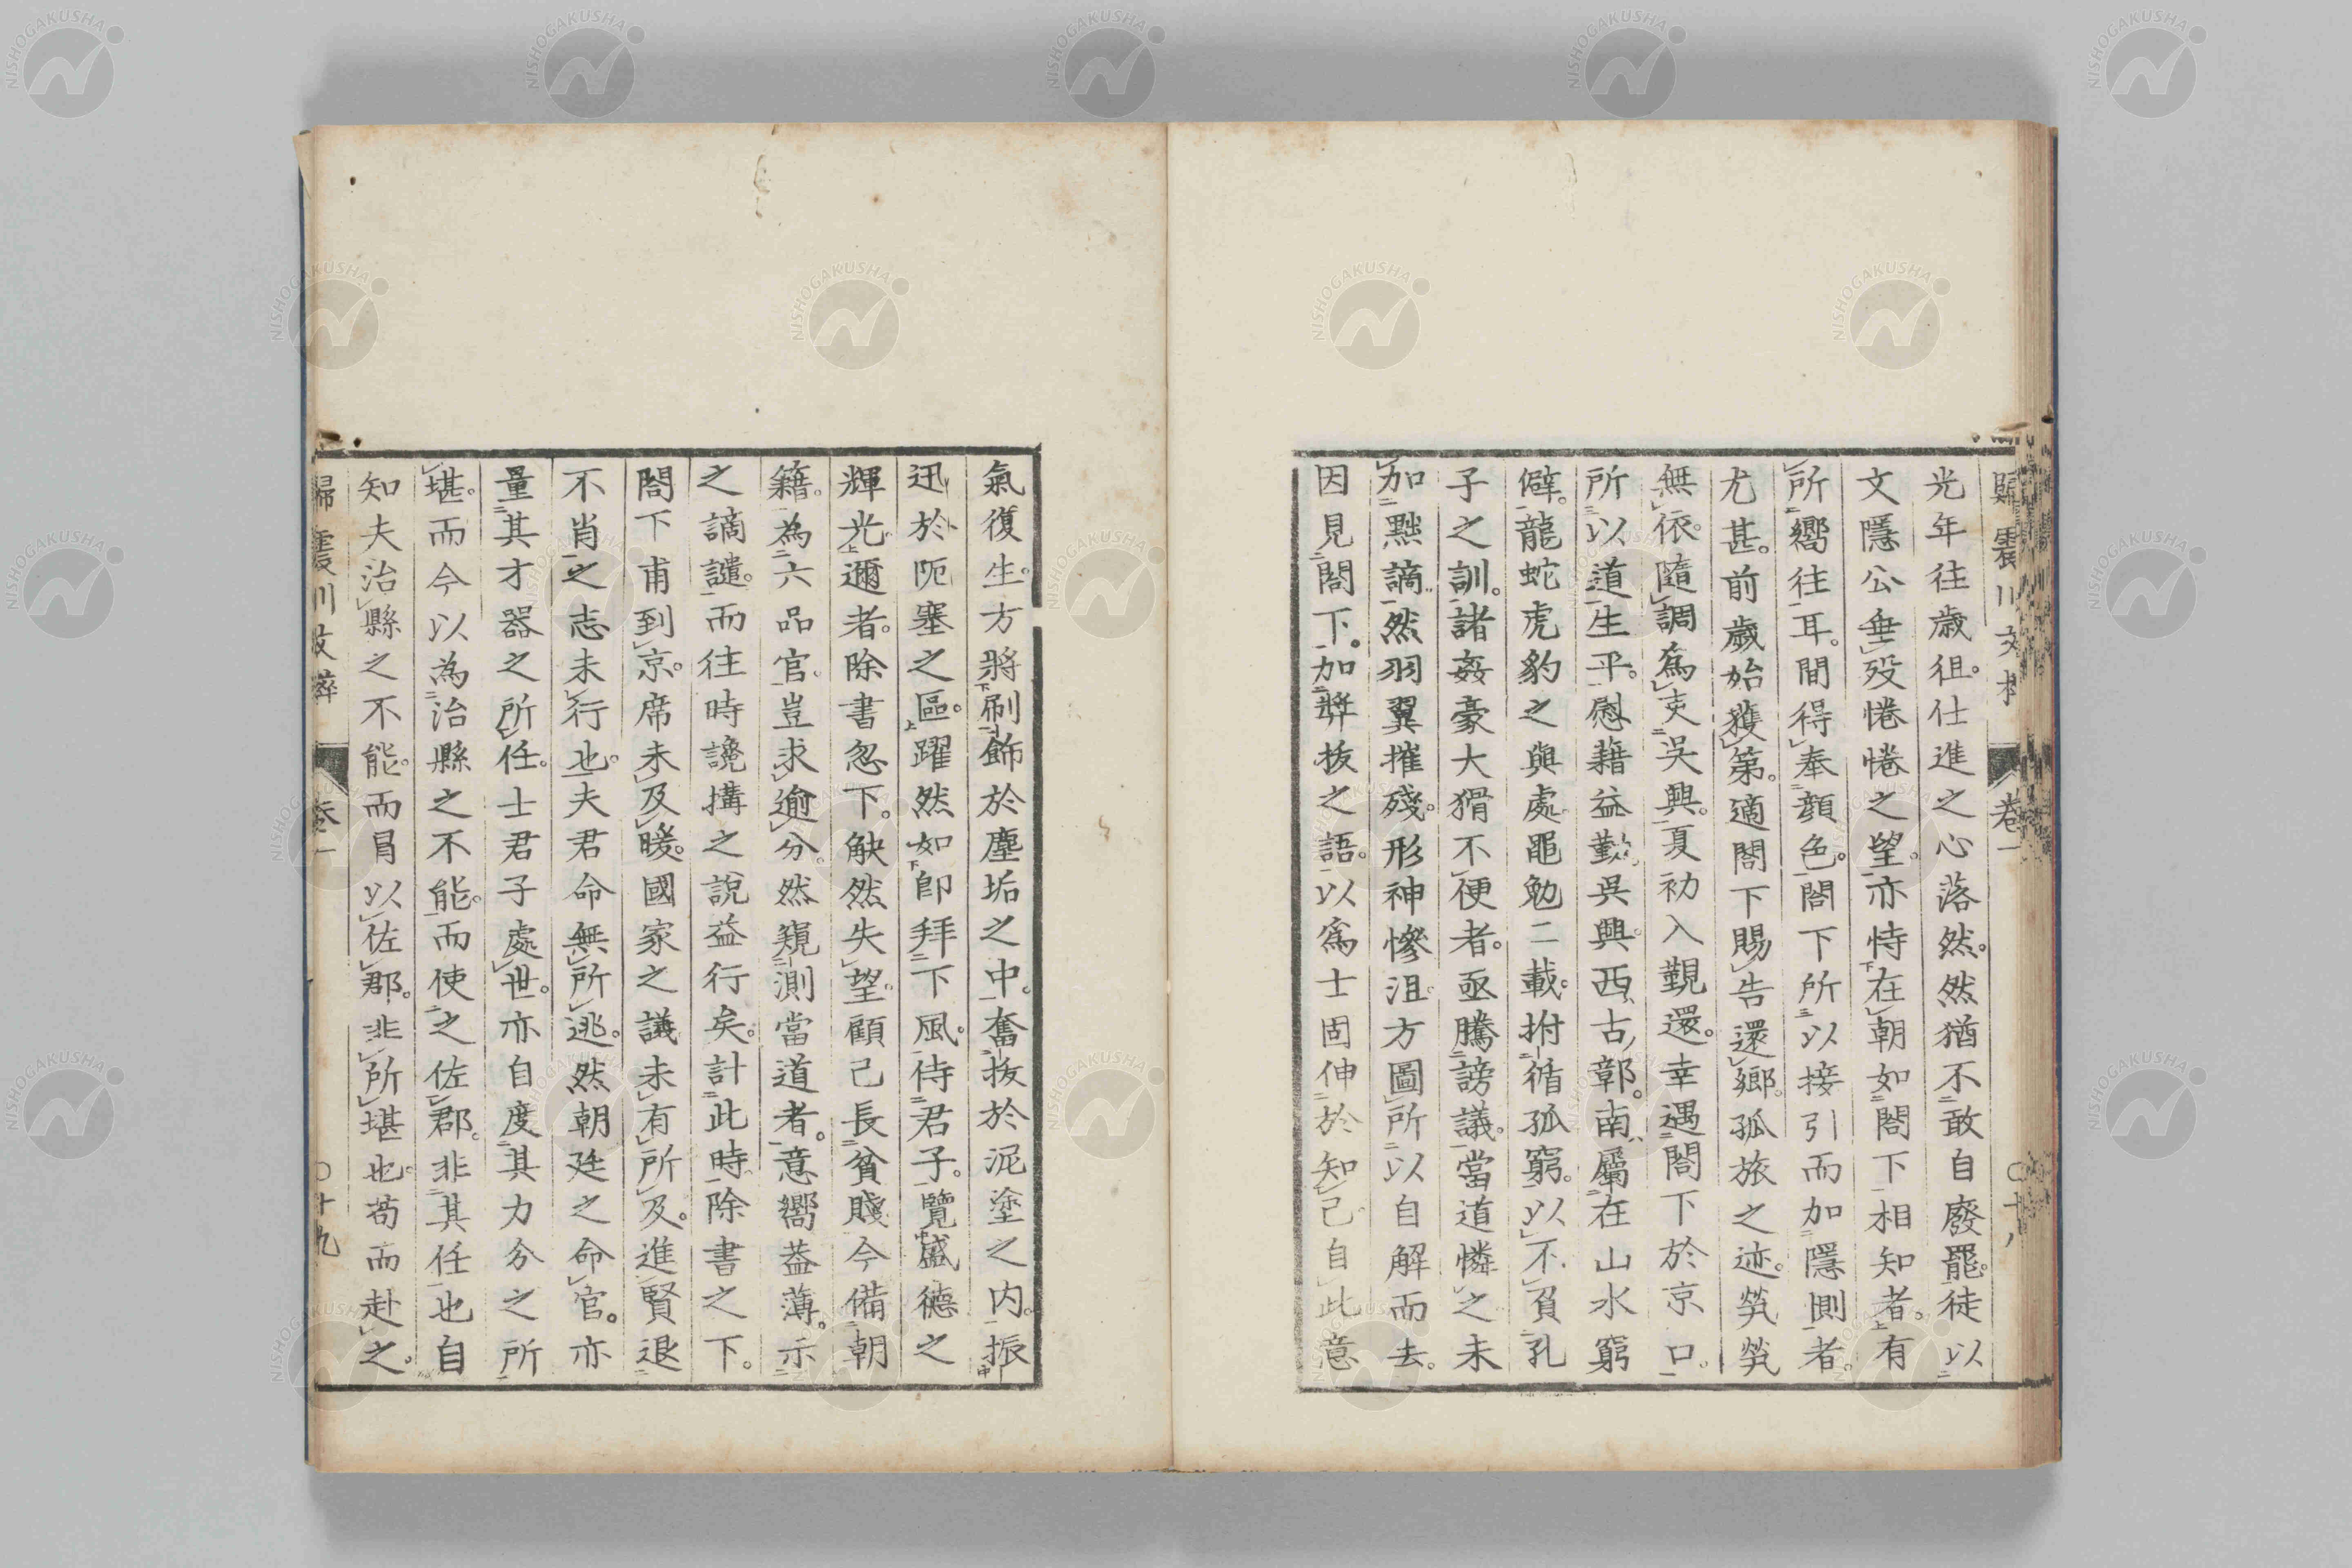 歸震川文粹 卷一 〇十八
光年往歲。徂。仕進之心落然。然猶不敢自廢罷。徒以
文隱公垂歿惓惓之望。亦恃在朝如閤下相知者。有
所嚮往耳。間得奉顔色。閤下所以接引而加隱惻者。
尤甚。前歲始獲第。適閤下賜告還鄉。孤旅之迹。煢煢
無依。隨調爲吏吳興。夏初入觐還。幸遇閤下於京口。
所以道生平。慰藉益勤。吳興。西古鄣。南屬在山水窮
僻。龍蛇虎豹之與處。黽勉二載。拊循孤窮。以不負孔
子之訓。諸姦豪大猾不便者。亟騰謗議。當道憐之未
加黜謫。然羽翼摧殘。形神慘沮。方圖所以自解而去。
因見閤下。加奬抜之語。以爲士固伸於知己。自此意
氣復生。方將刷飾於塵垢之中。奮抜於泥塗之内。振
迅於阨塞之區。躍然如卽拜下風。待君子。覽盛德之
輝光邇者。除書忽下。觖然失望。顧己長貧賤今備朝
籍。為六品官。豈求逾分。然窺測當道者。意嚮益薄。示
之謫譴。而往時讒搆之說益行矣。計此時。除書之下。
閤下甫到京。席未及暖。國家之議未有所及。進賢退
不肖之志未行也。夫君命無所逃。然朝廷之命官。亦
量其才器之所任。士君子處世。亦自度其力分之所
堪。而今以為治縣之不能。而使之佐郡。非其任也自
知夫治縣之不能。而冐以佐郡。非所堪也。苟而赴之。
歸震川文粹 卷一 〇十九
NISHOGAKUSHA